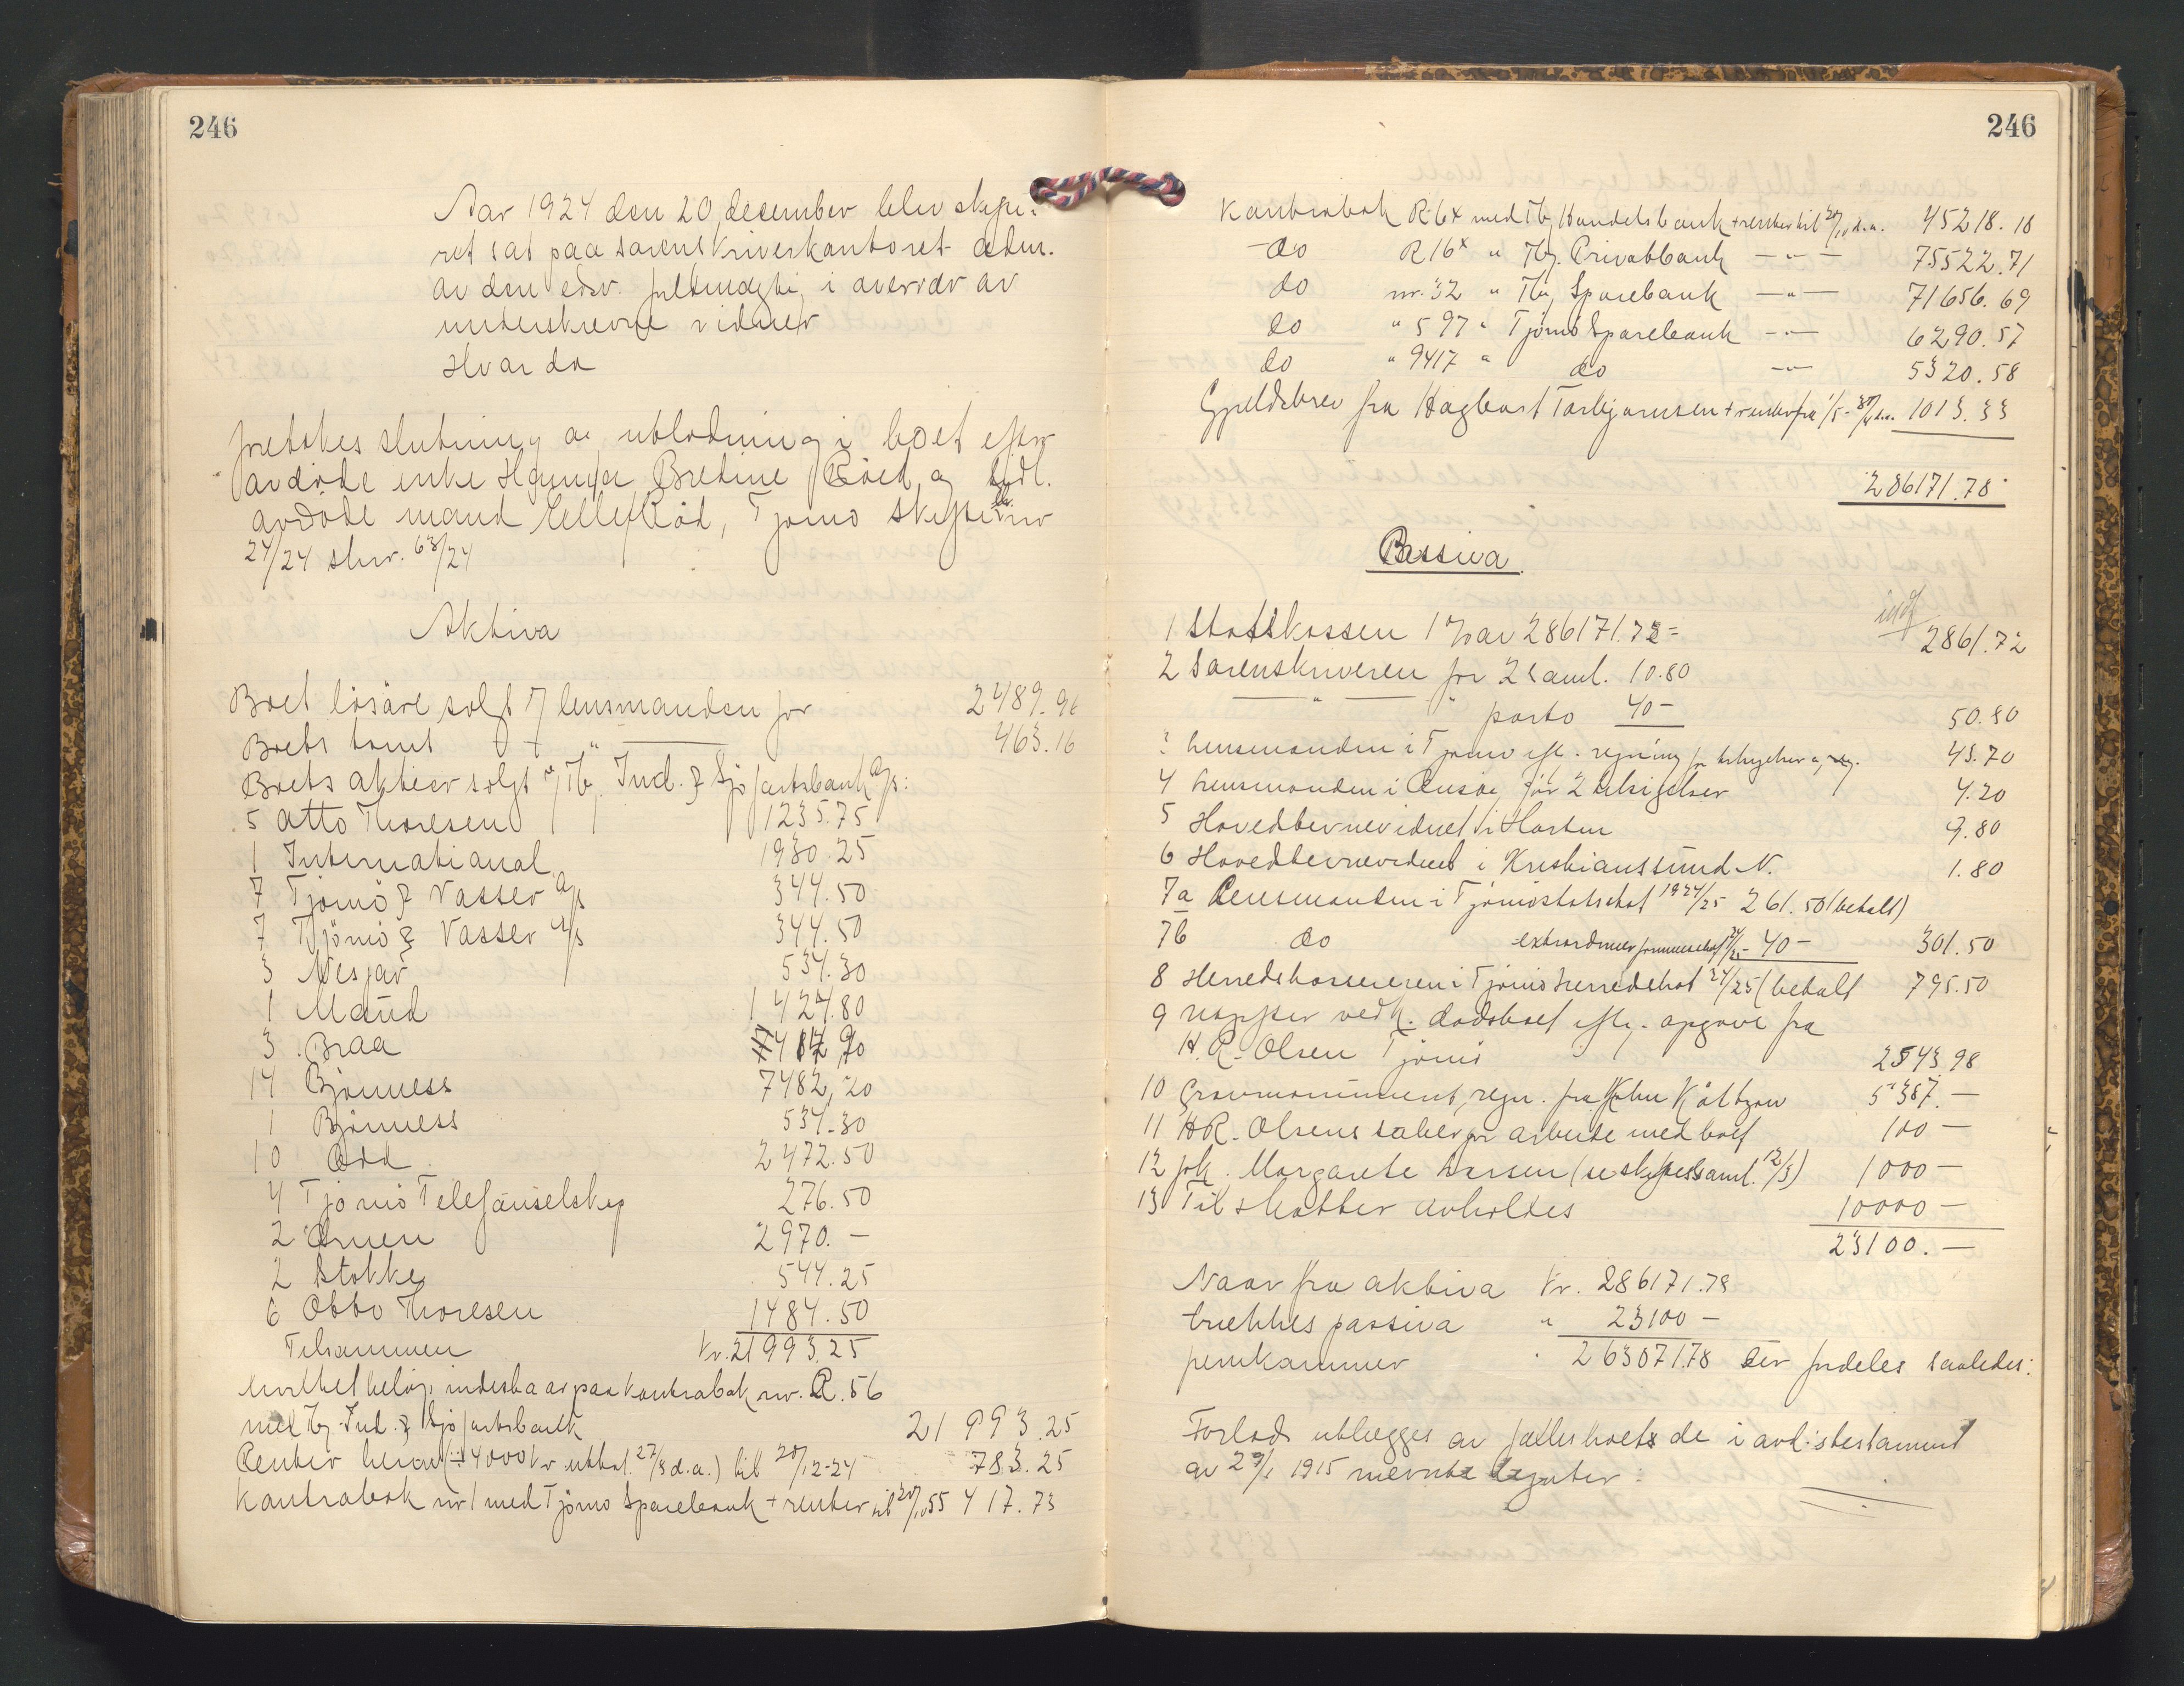 246
Aar 1924 den 20 desember blev skifte-
ret sat paa sorenskriverkontoret adm.
av den edsv. fuldmægtig i overvær av
underskrevne vidner
Hvorda
foretokes slutning og utlodning i boet efter
avdøde enke Gunda Bretine Röed og tidl.
avdøde mand Ellef Röd, Tjømö skifte nr
24/24 skr. 63/24
Aktiva
Boet lösöre solgt v/ lensmanden for 2489.96
Boets tomt " 463.16
Boets aktier solgt v/ Tbg. Ind. & Sjöfartsbank A/s:
5 Otto Thoresen 1235.75
1 International 1930.25
7 Tjömö & Vasser A/s 344.50
7 Tjömö & Vasser A/s 344.50
3 Nesjar 534.30
1 Maud 1424.80
3 Braa
14 Bjönness 7482,20
1 Bjönness 534.30
10 Odd 2472.50
4 Tjömö Telefonselskap 276.50
2 Ørnen 2970.-
2 Stokke 544.25
6 Otto Thoresen 1484.50
Tilsammen Kr. 21993.25
hvilket belöp indestaar paa kontrabok nr. R. 56
med Tbg. Ind. & Sjöfartsbank 21993.25
Renter herav (÷ 4000 kr utbet. 27/8 d.a.) til 20/12-24 783.25
Kontrabok nr 1 med Tjömö Sparebank + renter til 20/12 55417.73
246
Kontrabok R 6x med Tbg Handelsbank + renter til 20/12 d.a. 45218.18
do R 16x " Tbg. Privatbank — " — 75522.71
do nr. 32 " Tbg. Sparebank — " — 71656.69
do " 597 " Tjömö Sparebank — " — 6290.57
do " 9417 " do — " — 5320.58
Gjeldsbrev fra Hagbart Torbjørnsen + renter fra 1013.33
286171.78
Passiva
1 Statskassen 1 % av 286171.78 = 2861.72
2 Sorenskriveren for 2 saml. 10.80
— " — " porto 40- 50.80
3 Lensmanden i Tjømø efter regning for 43.70
4 Lensmanden i Onsøe for 2 tilsigelser 4.20
5 Hovedstevnevidnet i Horten 9.80
6 Hovedstevnevidnet i Kristianssund N. 1.80
7a Lensmanden i Tjømö statsskat 1924/25 261.50 (betalt)
7b do extraordinær formuesskat 24/25 - 40- 301.50
8 Herredskassereren i Tjömö herredskat 24/25 (betalt 795.50
9 Utgifter vedk. dødsboet eftr. opgave fra
H. R. Olsen Tjömö 2543.98
10 Gravmonument, regn. fra John Költzow 5387.-
11 H R. Olsens salær for arbeide med boet 100-
12 frk. Margarete Larsen (se skiftesaml. 12/3) 1000-
13 Til skatter avholdes 10000-
23100.-
Naar fra aktiva kr. 286171.78
trækkes passiva " 23100-
fremkommer " 263071.78 der fordeles saaledes:
Forlods utlægges av fællesboet de i avd.s testament
av 29/1 1915 nævnte legater: